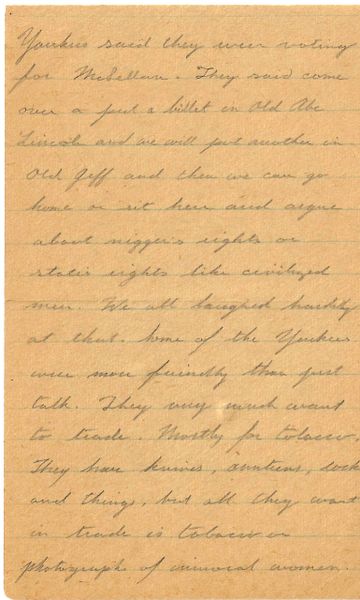 Yankees said they were voting
for McLellan. They said come
over a put a billet in Old Abe
Lincoln and we will put another in
Old Jeff and then we can go
home or sit here and argue
about nigger's rights or
state's rights like civilized
men. We all laughed hardily
at that. Some of the Yankees
were more friendly than just
talk. They very much want
to trade. Mostly for tobacco.
They have knives,
and things, but all they want
in trade is tobacco or
photograph of immoral women.